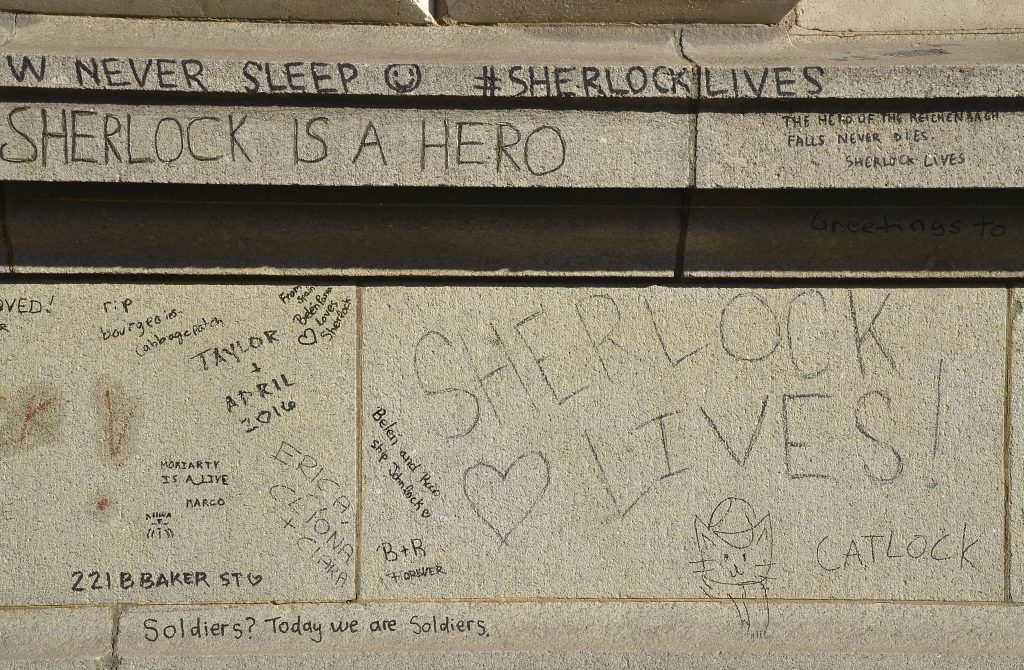 W NEVER SLEEP
#SHERLOCK LIVES
SHERLOCK IS A HERO
THE HERO OF THE REICHENBACH
FALLS NEVER DIES.
SHERLOCK LIVES
Greetings to
OVED!
rip
bourgeois
cabbagepatch
From
Spain
Belen
Loves
Sherlock
TAYLOR
+
APRIL
2016
SHERLOCK
LIVES!
Belen and
ship Johnlock
MORIARTY
IS ALIVE
MARCO
ERICA
CLIONA
+
CIARA
B+R
FOREVER
CATLOCK
221B BAKER ST
Soldiers? Today we are Soldiers.